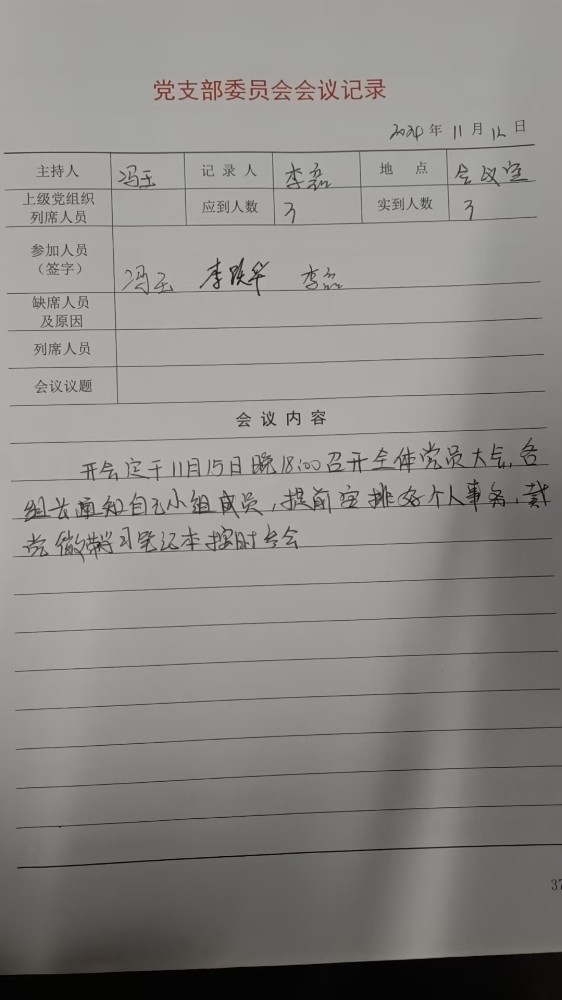 党支部委员会会议记录
2024 年 11 月 12 日
主持人 冯玉 记录人 李磊 地点 会议室
上级党组织
列席人员 应到人数 3 实到人数 3
参加人员
(签字) 冯玉 李跃华 李磊
缺席人员
及原因
列席人员
会议议题
会议内容
开会定于11月15日晚18:00召开全体党员大会,各
组长通知自己小组成员,提前安排好个人事务,戴
党徽带学习笔记本按时参会
37